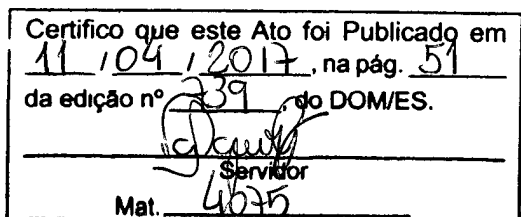 Certifico que este Ato foi Publicado em
11 / 04 / 2017, na pág. 51
da edição nº 739, do DOM/ES.
Servidor
Mat. 4675